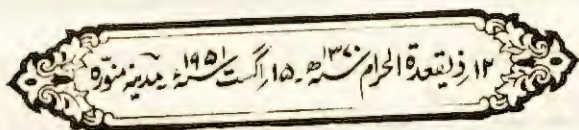 ۱۲ ذیقعدۃ الحرام ۱۳۷۰ھ ۔ ۱۵ اگست ۱۹۵۱ء ۔ مدینہ منورہ